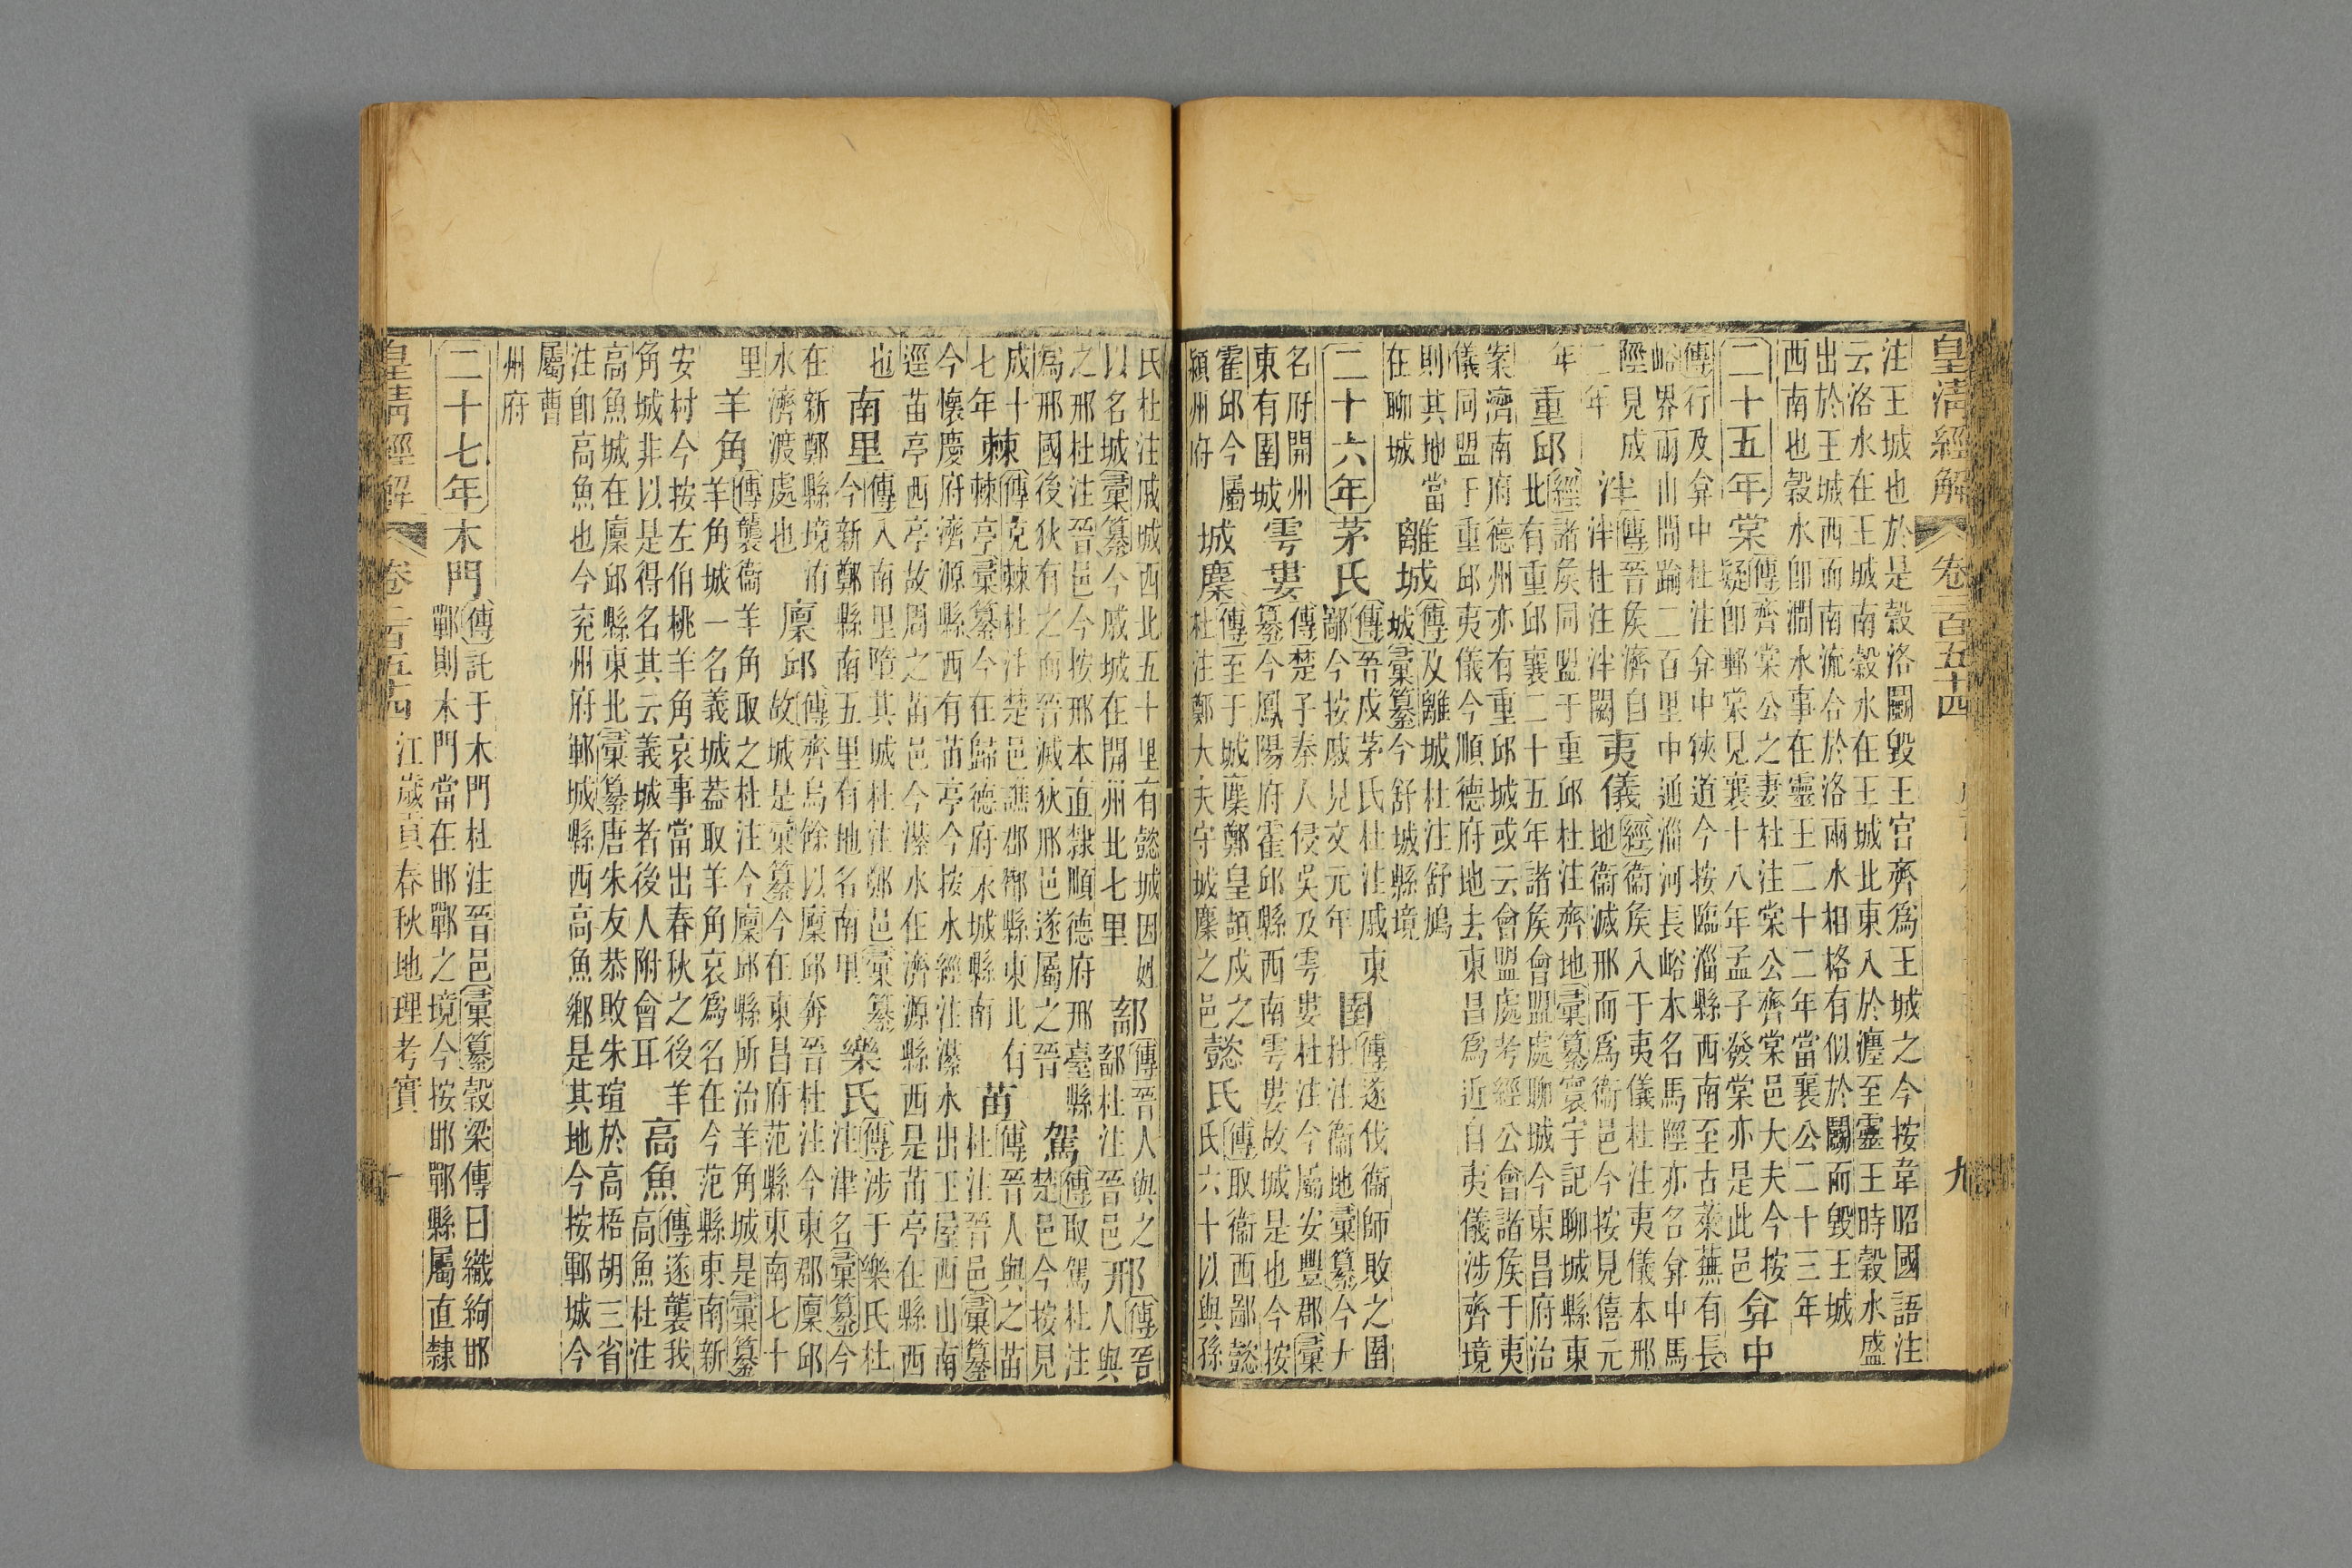 皇清經解 卷二百五十四 九
注王城也於是穀洛鬭毀王宮齊爲王城之今按韋昭國語注
云洛水在王城南穀水在王城北東入於瀍至靈王時穀水盛
出於王城西而南流合於洛兩水相格有似於鬭而毀王城
西南也穀水卽澗水事在靈王二十二年當襄公二十三年
二十五年
棠
傳齊棠公之妻杜注棠公齊棠邑大夫今按
疑卽鄆棠見襄十八年孟子發棠亦是此邑
弇中
傳行及弇中杜注弇中狹道今按臨淄縣西南至古萊蕪有長
峪界兩山間踰二百里中通淄河長峪本名馬陘亦名弇中馬
陘見成
二年
泮
傳晉矦濟自
泮杜注泮闕
夷儀
經衞矦入于夷儀杜注夷儀本邢
地衞滅邢而爲衞邑今按見僖元
年
重邱
經諸矦同盟于重邱杜注齊地彙纂寰宇記聊城縣東
北有重邱襄二十五年諸矦會盟處聊城今東昌府治
案濟南府德州亦有重邱城或云會盟處考經公會諸矦于夷
儀同盟于重邱夷儀今順德府地去東昌爲近自夷儀涉齊境
則其地當
在聊城
離城
傳及離城杜注舒鳩
城彙纂今舒城縣境
二十六年
茅氏
傳吾戍茅氏杜注戚東
鄙今按戚見文元年
圉
傳遂伐衞師敗之圉
杜注衞地彙纂今大
名府開州
東有圉城
雩婁
傳楚子秦人侵吳及雩婁杜注今屬安豐郡彙
纂今鳳陽府霍邱縣西南雩婁故城是也今按
霍邱今屬
潁州府
城麇
傳至于城麇鄭皇頡戍之
杜注鄭大夫守城麇之邑
懿氏
傳取衞西鄙懿
氏六十以與孫
氏杜注戚城西北五十里有懿城因姓
以名城彙纂今戚城在開州北七里
鄐
傳晉人與之
鄐杜注晉邑
邢
傳晉
人與
之邢杜注晉邑今按邢本直隸順德府邢臺縣
爲邢國後狄有之而晉滅狄邢邑遂屬之晉
駕
傳取駕杜注
楚邑今按見
成十
七年
棘
傳克棘杜注楚邑譙郡酇縣東北有
棘亭彙纂今在歸德府永城縣南
苗
傳晉人與之苗
杜注晉邑彙纂
今懷慶府濟源縣西有苗亭今按水經注濝水出王屋西山南
逕苗亭西亭故周之苗邑今濝水在濟源縣西是苗亭在縣西
也
南里
傳入南里墮其城杜注鄭邑彙纂
今新鄭縣南五里有地名南里
樂氏
傳涉于樂氏杜
注津名彙纂今
在新鄭縣境洧
水濟渡處也
廩邱
傳齊烏餘以廩邱奔晉杜注今東郡廩邱
故城是彙纂今在東昌府范縣東南七十
里
羊角
傳襲衞羊角取之杜注今廩邱縣所治羊角城是彙纂
羊角城一名義城葢取羊角哀爲名在今范縣東南新
安村今按左伯桃羊角哀事當出春秋之後羊
角城非以是得名其云義城者後人附會耳
高魚
傳遂襲我
高魚杜注
高魚城在廩邱縣東北彙纂唐朱友恭敗朱瑄於高梧胡三省
注卽高魚也今兗州府鄆城縣西高魚鄉是其地今按鄆城今
屬曹
州府
二十七年
木門
傳託于木門杜注晉邑彙纂穀梁傳曰織絢邯
鄲則木門當在邯鄲之境今按邯鄲縣屬直隸
皇清經解 卷二百五十四 江歲貢春秋地理考實 十